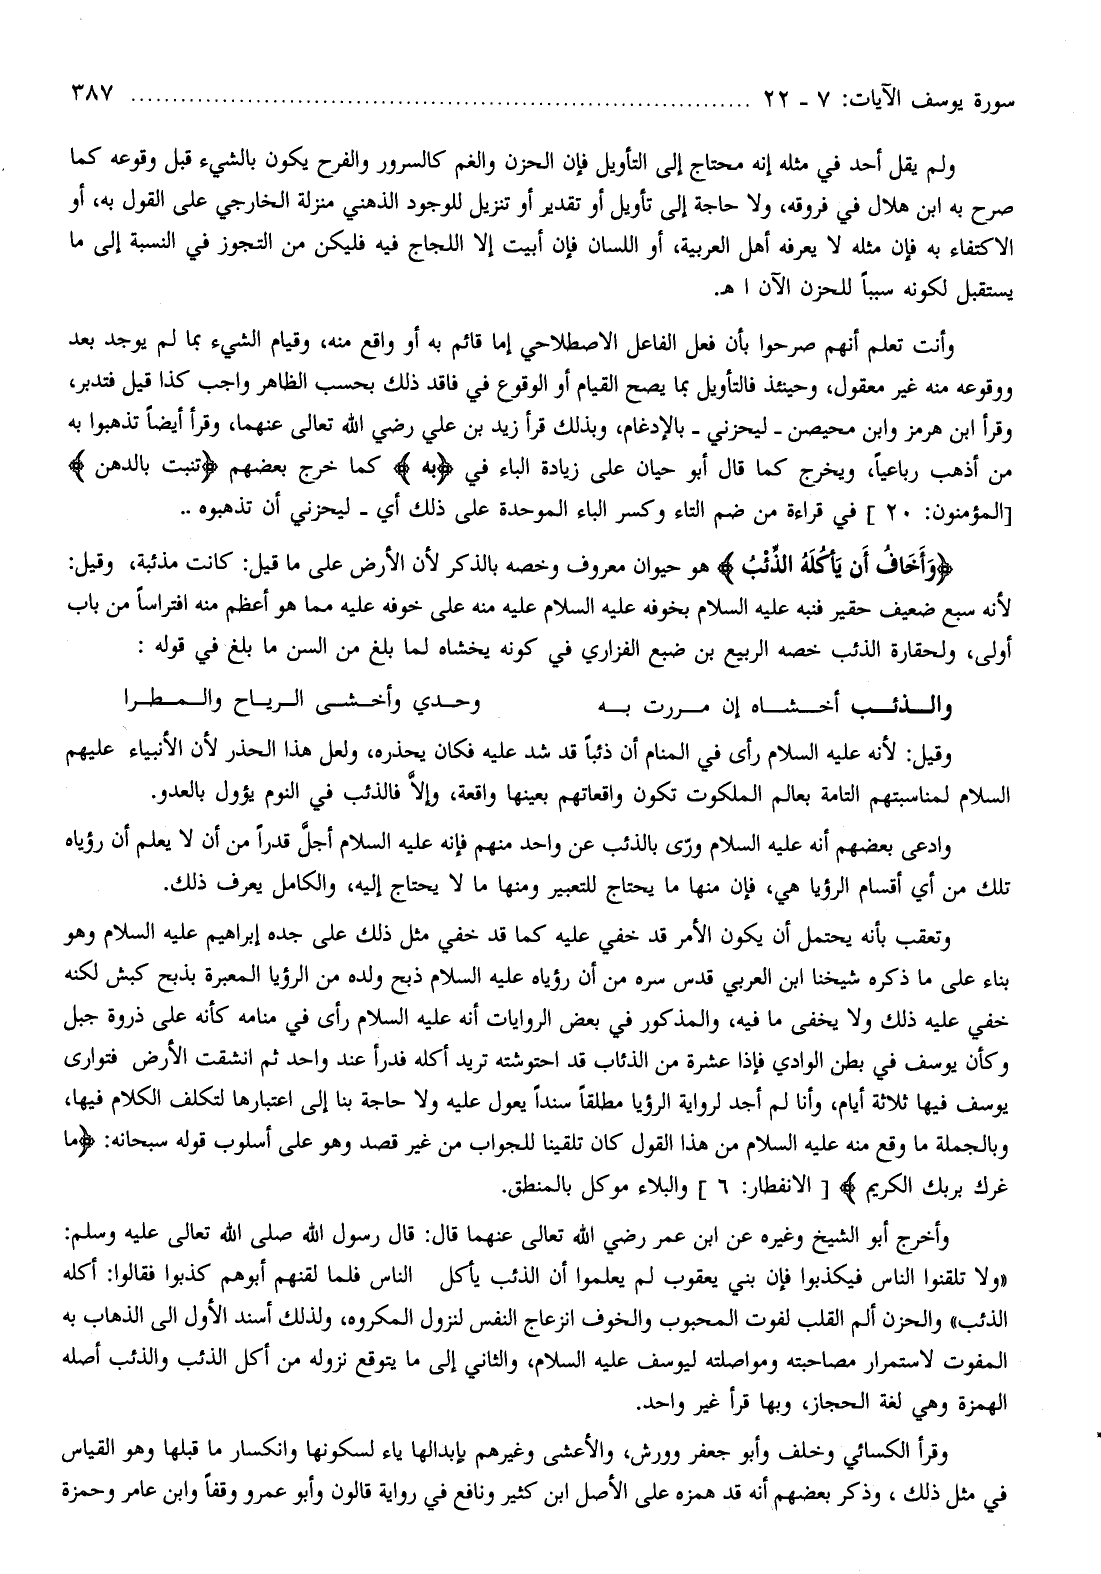 سورة يوسف الآيات: ٧ - ٢٢ ........................................................................... ٣٨٧
ولم يقل أحد في مثله إنه محتاج إلى التأويل فإن الحزن والغم كالسرور والفرح يكون بالشيء قبل وقوعه كما
صرح به ابن هلال في فروقه، ولا حاجة إلى تأويل أو تقدير أو تنزيل للوجود الذهني منزلة الخارجي على القول به، أو
الاكتفاء به فإن مثله لا يعرفه أهل العربية، أو اللسان فإن أبيت إلا اللجاج فيه فليكن من التجوز في النسبة إلى ما
يستقبل لكونه سبباً للحزن الآن ا هـ.
وأنت تعلم أنهم صرحوا بأن فعل الفاعل الاصطلاحي إما قائم به أو واقع منه، وقيام الشيء بما لم يوجد بعد
ووقوعه منه غير معقول، وحينئذ فالتأويل بما يصح القيام أو الوقوع في فاقد ذلك بحسب الظاهر واجب كذا قيل فتدبر،
وقرأ ابن هرمز وابن محيصن ـ ليحزني ـ بالإدغام، وبذلك قرأ زيد بن علي رضي الله تعالى عنهما، وقرأ أيضاً تذهبوا به
من أذهب رباعياً، ويخرج كما قال أبو حيان على زيادة الباء في ﴿به﴾ كما خرج بعضهم ﴿تنبت بالدهن﴾
[المؤمنون: ٢٠ ] في قراءة من ضم التاء وكسر الباء الموحدة على ذلك أي ـ ليحزني أن تذهبوه ..
﴿وَأَخَافُ أَن يَأكُلَهُ الذِّئْبُ﴾ هو حيوان معروف وخصه بالذكر لأن الأرض على ما قيل: كانت مذئبة، وقيل:
لأنه سبع ضعيف حقير فنبه عليه السلام بخوفه عليه السلام عليه منه على خوفه عليه مما هو أعظم منه افتراساً من باب
أولى، ولحقارة الذئب خصه الربيع بن ضبع الفزاري في كونه يخشاه لما بلغ من السن ما بلغ في قوله :
والـذئـب أخـشـاه إن مـررت بـه وحـدي وأخـشـى الـريـاح والـمـطـرا
وقيل: لأنه عليه السلام رأى في المنام أن ذئباً قد شد عليه فكان يحذره، ولعل هذا الحذر لأن الأنبياء عليهم
السلام لمناسبتهم التامة بعالم الملكوت تكون واقعاتهم بعينها واقعة، وإلاَّ فالذئب في النوم يؤول بالعدو.
وادعى بعضهم أنه عليه السلام ورّى بالذئب عن واحد منهم فإنه عليه السلام أجلَّ قدراً من أن لا يعلم أن رؤياه
تلك من أي أقسام الرؤيا هي، فإن منها ما يحتاج للتعبير ومنها ما لا يحتاج إليه، والكامل يعرف ذلك.
وتعقب بأنه يحتمل أن يكون الأمر قد خفي عليه كما قد خفي مثل ذلك على جده إبراهيم عليه السلام وهو
بناء على ما ذكره شيخنا ابن العربي قدس سره من أن رؤياه عليه السلام ذبح ولده من الرؤيا المعبرة بذبح كبش لكنه
خفي عليه ذلك ولا يخفى ما فيه، والمذكور في بعض الروايات أنه عليه السلام رأى في منامه كأنه على ذروة جبل
وكأن يوسف في بطن الوادي فإذا عشرة من الذئاب قد احتوشته تريد أكله فدرأ عند واحد ثم انشقت الأرض فتوارى
يوسف فيها ثلاثة أيام، وأنا لم أجد لرواية الرؤيا مطلقاً سنداً يعول عليه ولا حاجة بنا إلى اعتبارها لتكلف الكلام فيها،
وبالجملة ما وقع منه عليه السلام من هذا القول كان تلقينا للجواب من غير قصد وهو على أسلوب قوله سبحانه: ﴿ما
غرك بربك الكريم﴾ [ الانفطار: ٦ ] والبلاء موكل بالمنطق.
وأخرج أبو الشيخ وغيره عن ابن عمر رضي الله تعالى عنهما قال: قال رسول الله صلى الله تعالى عليه وسلم:
«ولا تلقنوا الناس فيكذبوا فإن بني يعقوب لم يعلموا أن الذئب يأكل الناس فلما لقنهم أبوهم كذبوا فقالوا: أكله
الذئب» والحزن ألم القلب لفوت المحبوب والخوف انزعاج النفس لنزول المكروه، ولذلك أسند الأول الى الذهاب به
المفوت لاستمرار مصاحبته ومواصلته ليوسف عليه السلام، والثاني إلى ما يتوقع نزوله من أكل الذئب والذئب أصله
الهمزة وهي لغة الحجاز، وبها قرأ غير واحد.
وقرأ الكسائي وخلف وأبو جعفر وورش، والأعشى وغيرهم بإبدالها ياء لسكونها وانكسار ما قبلها وهو القياس
في مثل ذلك ، وذكر بعضهم أنه قد همزه على الأصل ابن كثير ونافع في رواية قالون وأبو عمرو وقفاً وابن عامر وحمزة